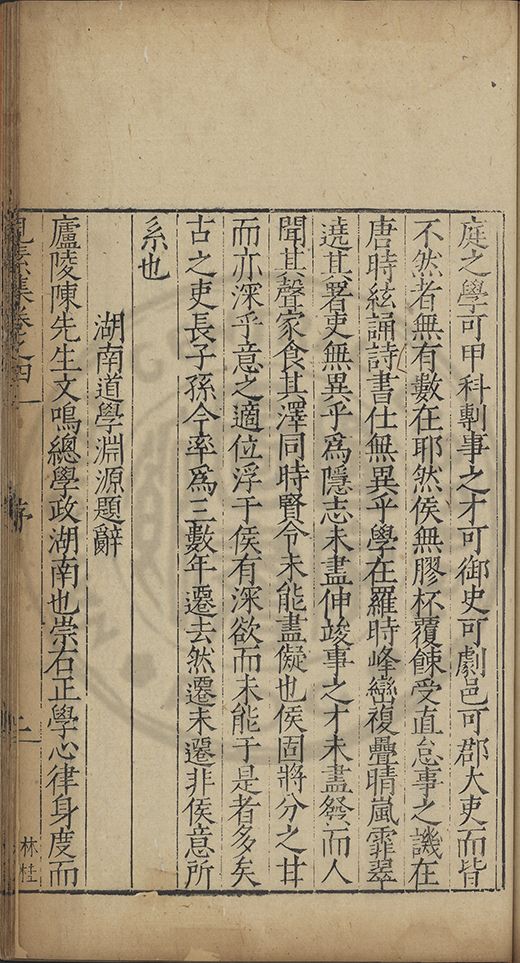 庭之學可甲科剸事之才可御史可劇邑可郡大吏而皆
不然者無有數在耶然侯無膠杯覆餗受直怠事之譏在
唐時絃誦詩書仕無異乎學在羅時峰巒復疊晴嵐霏翠
遶其署吏無異乎為隱志未盡伸竣事之才未盡發而人
聞其聲家食其澤同時賢令未能盡儗也侯固將分之甘
而亦深乎意之適位浮于侯有深欲而未能于是者多矣
古之吏長子孫今率為三數年遷去然遷未遷非侯意所
系也
湖南道學淵源題辭
廬陵陳先生文鳴總學政湖南也崇右正學心律身度而
集卷之四 序
林桂